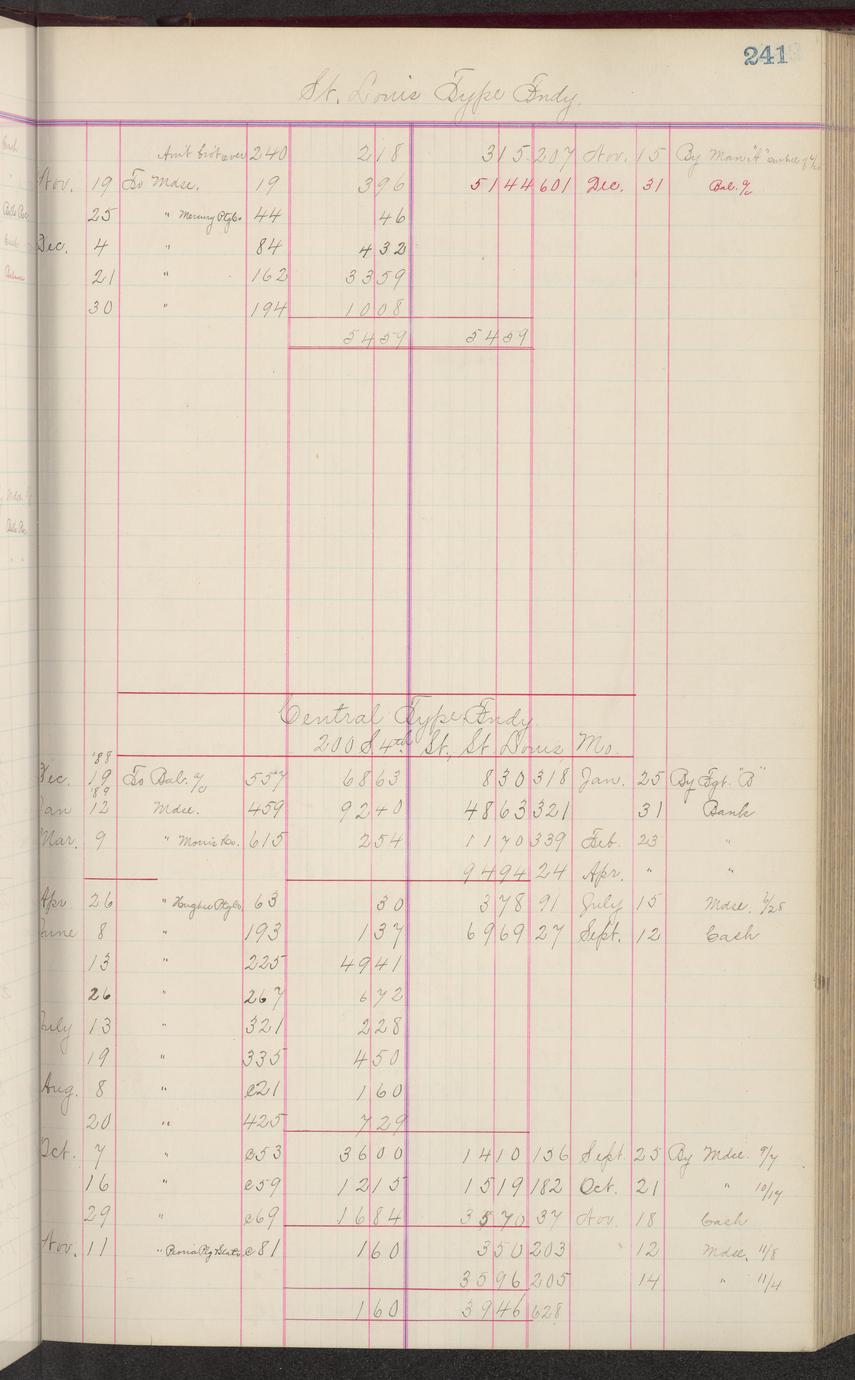 241
St. Louis Type Fndy.
Am't bro't over 240 218 315 207 Nov. 15 By Man
Nov. 19 To Mdse. 19 396 5144 601 Dec. 31 Bal. %
25 " Mercury Ptg Co 44 46
Dec. 4 " 84 432
21 " 162 3359
30 " 194 1008
5459 5459
Central Type Fndy.
200 S. 4th St. St. Louis, Mo.
'88
Dec. 19 To Bal. % 557 6863 830 318 Jan. 25 By Fgt. "B"
'89
Jan 12 Mdse. 459 9240 4863 321 31 Bank
Mar. 9 " Morris Co. 615 254 1170 339 Feb. 23 "
9494 24 Apr. " "
Apr 26 " Hughes Ptg Co 63 30 378 91 July 15 Mdse. 6/28
June 8 " 193 137 6969 27 Sept. 12 Cash
13 " 225 4941
26 " 267 672
July 13 " 321 228
19 " 335 450
Aug. 8 " c21 160
20 " 425 729
Oct. 7 " c53 3600 1410 156 Sept 25 By Mdse. 9/7
16 " c59 1215 1519 182 Oct. 21 " 10/17
29 " c69 1684 3570 37 Nov. 18 Cash
Nov. 11 " Peoria Ptg c81 160 350 203 " 12 Mdse. 11/8
3596 205 14 " 11/4
160 3946 628